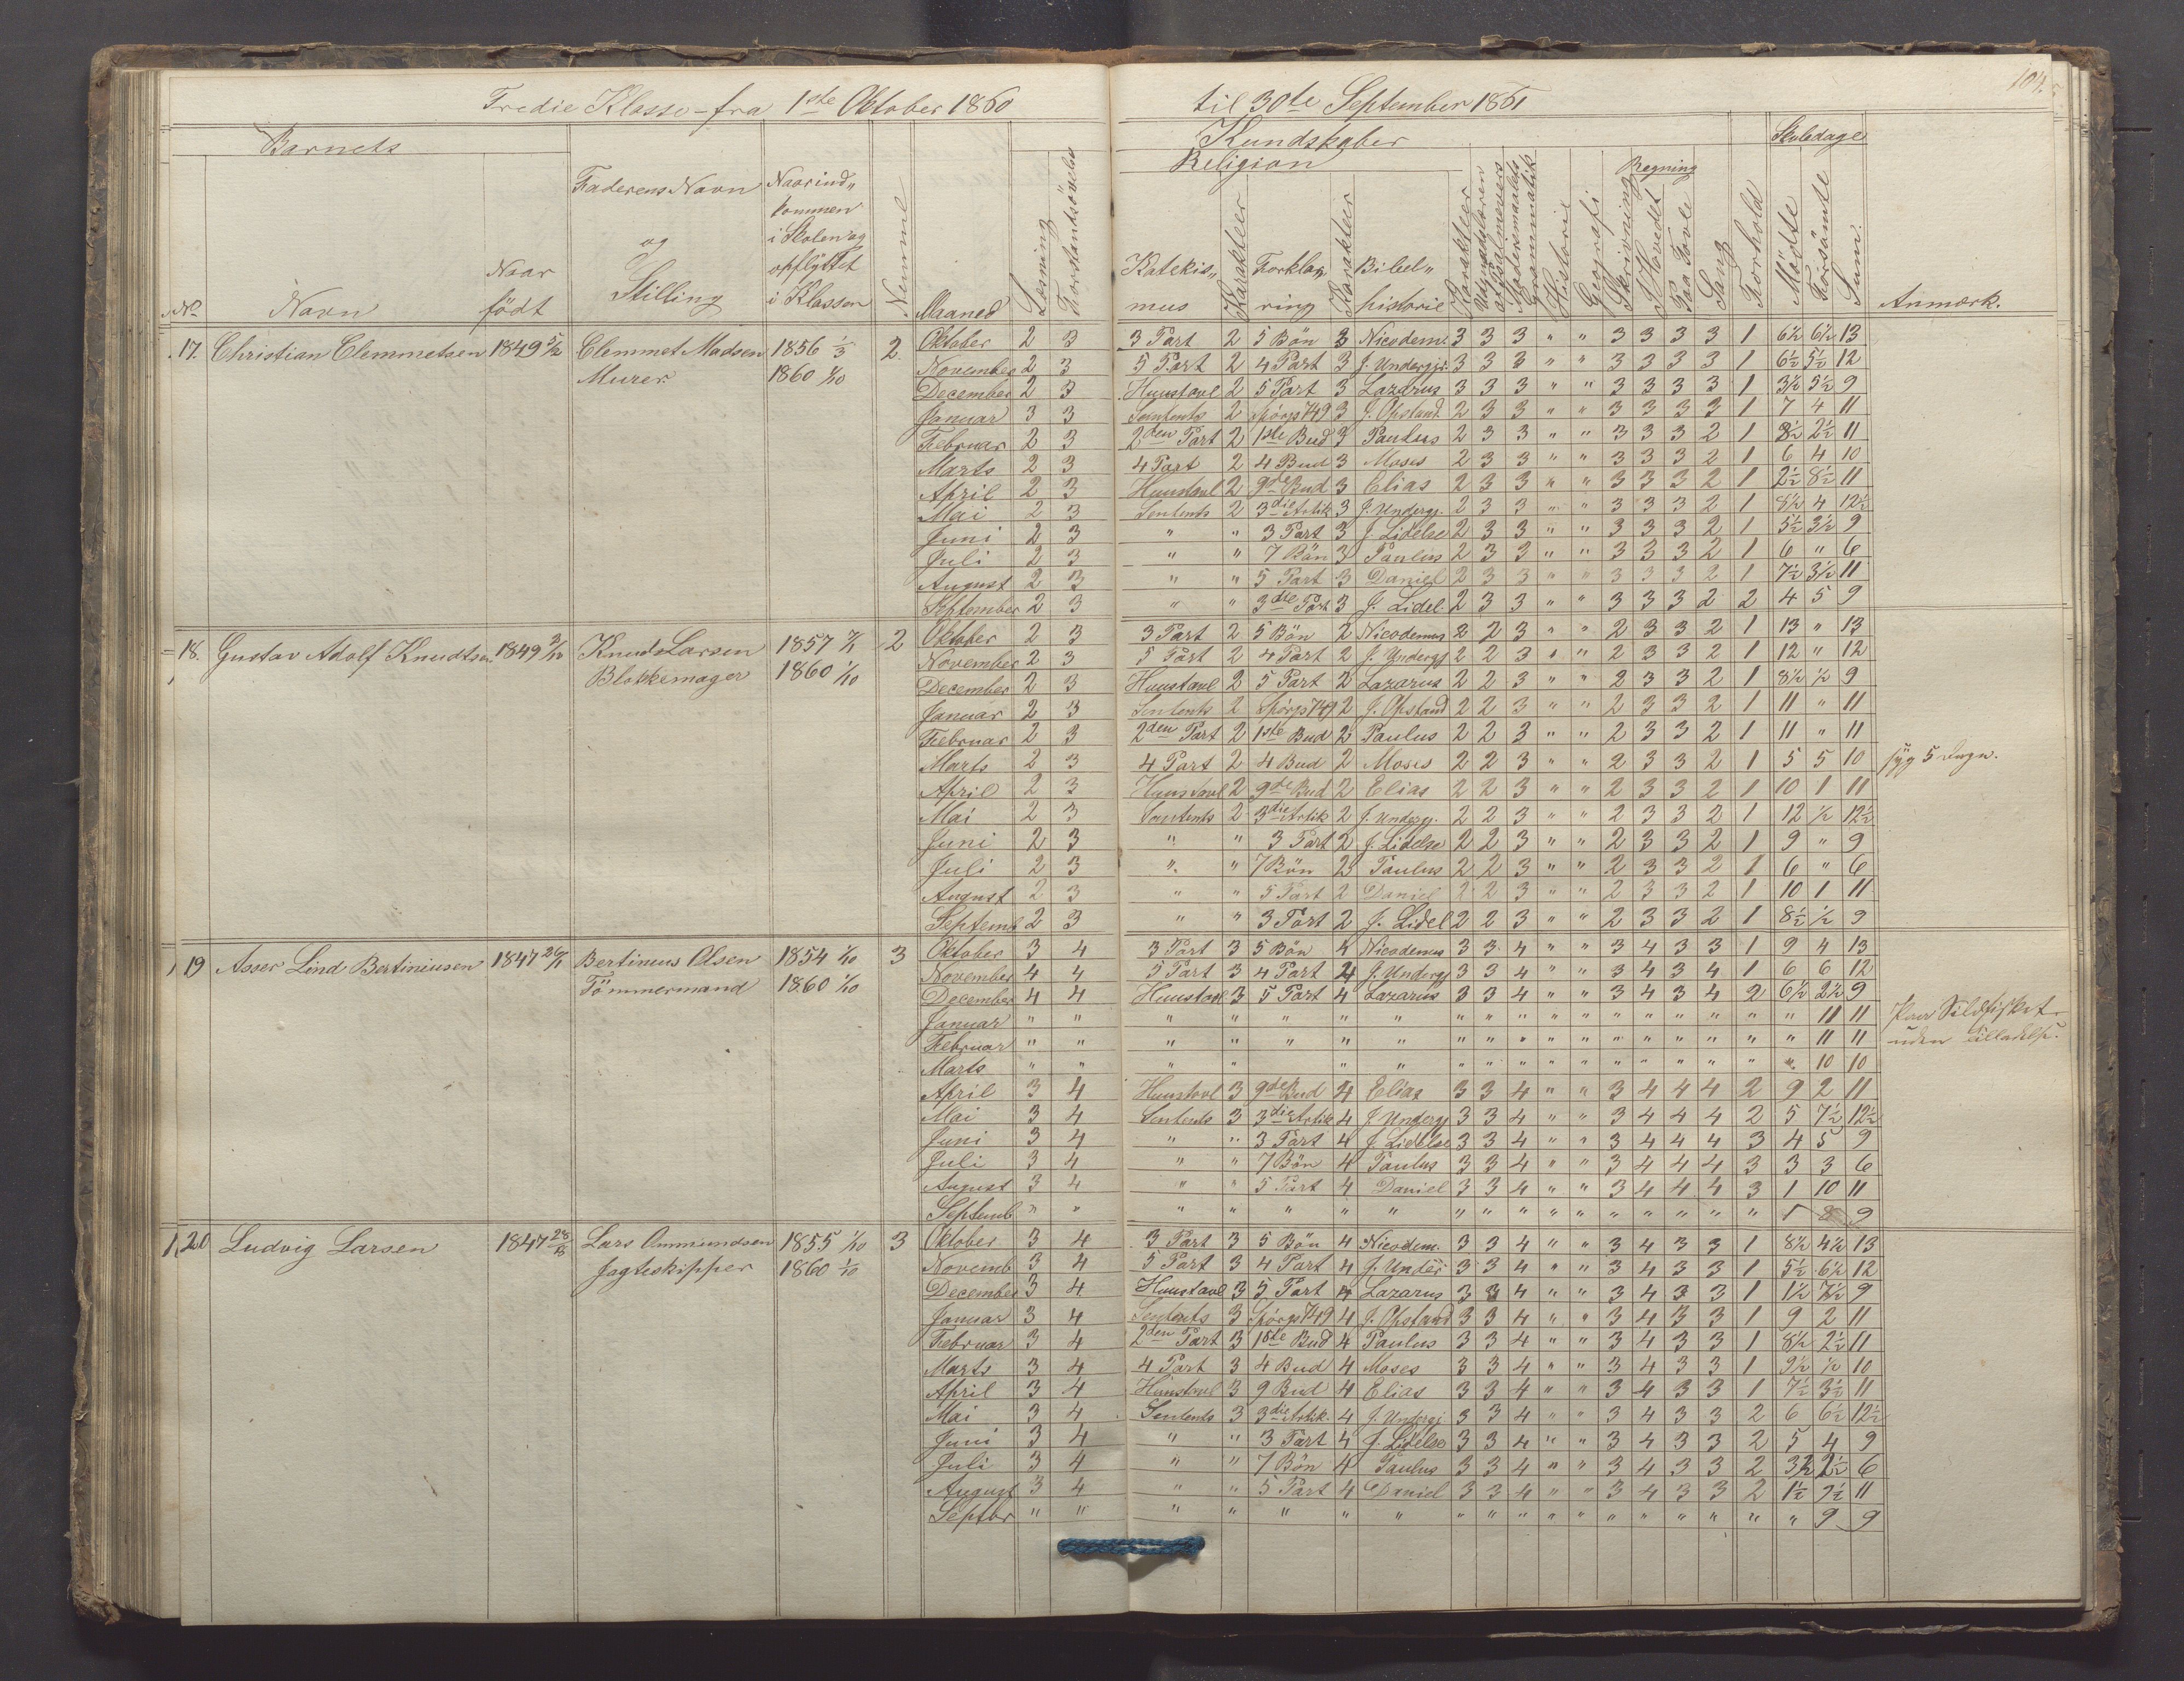 104.
Tredie Klasse - fra 1ste Oktober 1860 til 30te September 1861
Barnets
Kundskaber
Skoledage
Religion
Regning
No Navn Naar født Faderens Navn og Stilling Naar ind„kommen i Skolen og opflyttet i Klassen Nummer Maaned Læsning Forstandsövelse Katekis„mus Karakter Forklaring Karakter Bibel„historie Karakter Udenadslæren af Psalmevers Modersmaalets Grammatik Historie Geografi Skrivning I Hovedet Paa Tavle Sang Forhold Mödte Forsömte Sum. Anmærk.
17. Christian Clemmetsen 1849 5/12 Clemmet Madsen 1856 1/3 2. Oktober 2 3 3 Part 2 5 Bön 3 Nicodem. 3 3 3 " " 3 3 3 3 1 6½ 6½ 13
Murer. 1860 1/10 November 2 3 5 Part 2 4 Part 3 J. Undergjr. 3 3 3 " " 3 3 3 3 1 6½ 5½ 12
December 2 3 Huustavl 2 5 Part 3 Lazarus 3 3 3 " " 3 3 3 3 1 3½ 5½ 9
Januar 3 3 Sentents 2 Spörgs 749 3 J. Opstand. 2 3 3 " " 3 3 3 3 1 7 4 11
Februar 2 3 2den Part 2 1ste Bud 3 Paulus 2 3 3 " " 3 3 3 2 1 8½ 2½ 11
Marts 2 3 4 Part 2 4 Bud 3 Moses 2 3 3 " " 3 3 3 2 1 6 4 10
April 2 3 Huustavl 2 9de Bud 3 Elias 2 3 3 " " 3 3 3 2 1 2½ 8½ 11
Mai 2 3 Sentents 2 3die Artik 3 J. Undergj. 2 3 3 " " 3 3 3 2 1 8½ 4 12½
Juni 2 3 " " 3 Part 3 J. Lidelse 2 3 3 " " 3 3 3 2 1 5½ 3½ 9
Juli 2 3 " " 7 Bön 3 Paulus 2 3 3 " " 3 3 3 2 1 6 " 6
August 2 3 " " 5 Part 3 Daniel 2 3 3 " " 3 3 3 2 1 7½ 3½ 11
September 2 3 " " 3die Part 3 J. Lidel. 2 3 3 " " 3 3 3 2 2 4 5 9
18. Gustav Adolf Knudtsen 1849 Knud Larsen 1857 2 Oktober 2 3 3 Part 2 5 Bön 2 Nicodemus 2 2 3 " " 2 3 3 2 1 13 " 13
Blokkemager 1860 1/10 November 2 3 5 Part 2 4 Part 2 J. Undergj 2 2 3 " " 2 3 3 2 1 12 " 12
December 2 3 Huustavl 2 5 Part 2 Lazarus 2 2 3 " " 2 3 3 2 1 8½ ½ 9
Januar 2 3 Sentents 2 Spörgs 749 2 J. Opstand 2 2 3 " " 2 3 3 2 1 11 " 11
Februar 2 3 2den Part 2 1ste Bud 2 Paulus 2 2 3 " " 2 3 3 2 1 11 " 11
Marts 2 3 4 Part 2 4 Bud 2 Moses 2 2 3 " " 2 3 3 2 1 5 5 10 syg 5 Dage.
April 2 3 Huustavl 2 9de Bud 2 Elias 2 2 3 " " 2 3 3 2 1 10 1 11
Mai 2 3 Sentents 2 3die Artik 2 J. Undergj. 2 2 3 " " 2 3 3 2 1 12 ½ 12½
Juni 2 3 " " 3 Part 2 J. Lidelse 2 2 3 " " 2 3 3 2 1 9 " 9
Juli 2 3 " " 7 Bön 2 Paulus 2 2 3 " " 2 3 3 2 1 6 " 6
August 2 3 " " 5 Part 2 Daniel 2 2 3 " " 2 3 3 2 1 10 1 11
Septemb 2 3 " " 3 Part 2 J. Lidel 2 2 3 " " 2 3 3 2 1 8½ ½ 9
19 Asser Lind Bertiniusen 1847 26/1 Bertinius Olsen 1854 1/10 3 Oktober 3 4 3 Part 3 5 Bön 4 Nicodemus 3 3 4 " " 3 4 3 3 1 9 4 13
Tömmermand 1860 1/10 November 4 4 5 Part 3 4 Part 4 J. Undergj 3 3 4 " " 3 4 3 4 1 6 6 12
December 4 4 Huustavl 3 5 Part 4 Lazarus 3 3 4 " " 3 4 3 4 2 6½ 2½ 9
Januar " " " " " " " " " " " " " " " " " " 11 11 Paa Sildfisket
Februar " " " " " " " " " " " " " " " " " " 11 11 uden Tilladelse.
Marts " " " " " " " " " " " " " " " " " " 10 10
April 3 4 Huustavl 3 9de Bud 4 Elias 3 3 4 " " 3 4 4 4 2 9 2 11
Mai 3 4 Sentents 3 3die Artik 4 J Undergj 3 3 4 " " 3 4 4 4 2 5 7½ 12½
Juni 3 4 " " 3 Part 4 J. Lidelse 3 3 4 " " 3 4 4 4 3 4 5 9
Juli 3 4 " " 7 Bön 4 Paulus 3 3 4 " " 3 4 4 4 3 3 3 6
August 3 4 " " 5 Part 4 Daniel 3 3 4 " " 3 4 4 4 3 1 10 11
Septemb " " " " " " " " " " " " " " " " " 1 8 9
20 Ludvig Larsen 1847 Lars Ommundsen 1855 1/10 3 Oktober 3 4 3 Part 3 5 Bön 4 Nicodem. 3 3 4 " " 3 4 3 3 1 8½ 4½ 13
Jagteskipper 1860 1/10 Novemb 3 4 5 Part 3 4 Part 4 J. Under 3 3 4 " " 3 4 3 3 1 5½ 6½ 12
December 3 4 Huustavl 3 5 Part 4 Lazarus 3 3 4 " " 3 4 3 3 1 1½ 7½ 9
Januar 3 4 Sentents 3 Spörgs 749 4 J. Opstand 3 3 4 " " 3 4 3 3 1 9 2 11
Februar 3 4 2den Part 3 1ste Bud 4 Paulus 3 3 4 " " 3 4 3 3 1 8½ 2½ 11
Marts 3 4 4 Part 3 4 Bud 4 Moses 3 3 4 " " 3 4 3 3 1 9½ ½ 10
April 3 4 Huustavl 3 9 Bud 4 Elias 3 3 4 " " 3 4 3 3 1 7½ 3½ 11
Mai 3 4 Sentents 3 3die Artik. 4 J. Undergj 3 3 4 " " 3 4 3 3 2 6 6½ 12½
Juni 3 4 " " 3 Part 4 J. Lidelse 3 3 4 " " 3 4 3 3 2 5 4 9
Juli 3 4 " " 7 Bön 4 Paulus 3 3 4 " " 3 4 3 3 2 3½ 2½ 6
August 3 4 " " 5 Part 4 Daniel 3 3 4 " " 3 4 3 3 2 1½ 9½ 11
Septbr " " " " " " " " " " " " " " " " " " 9 9